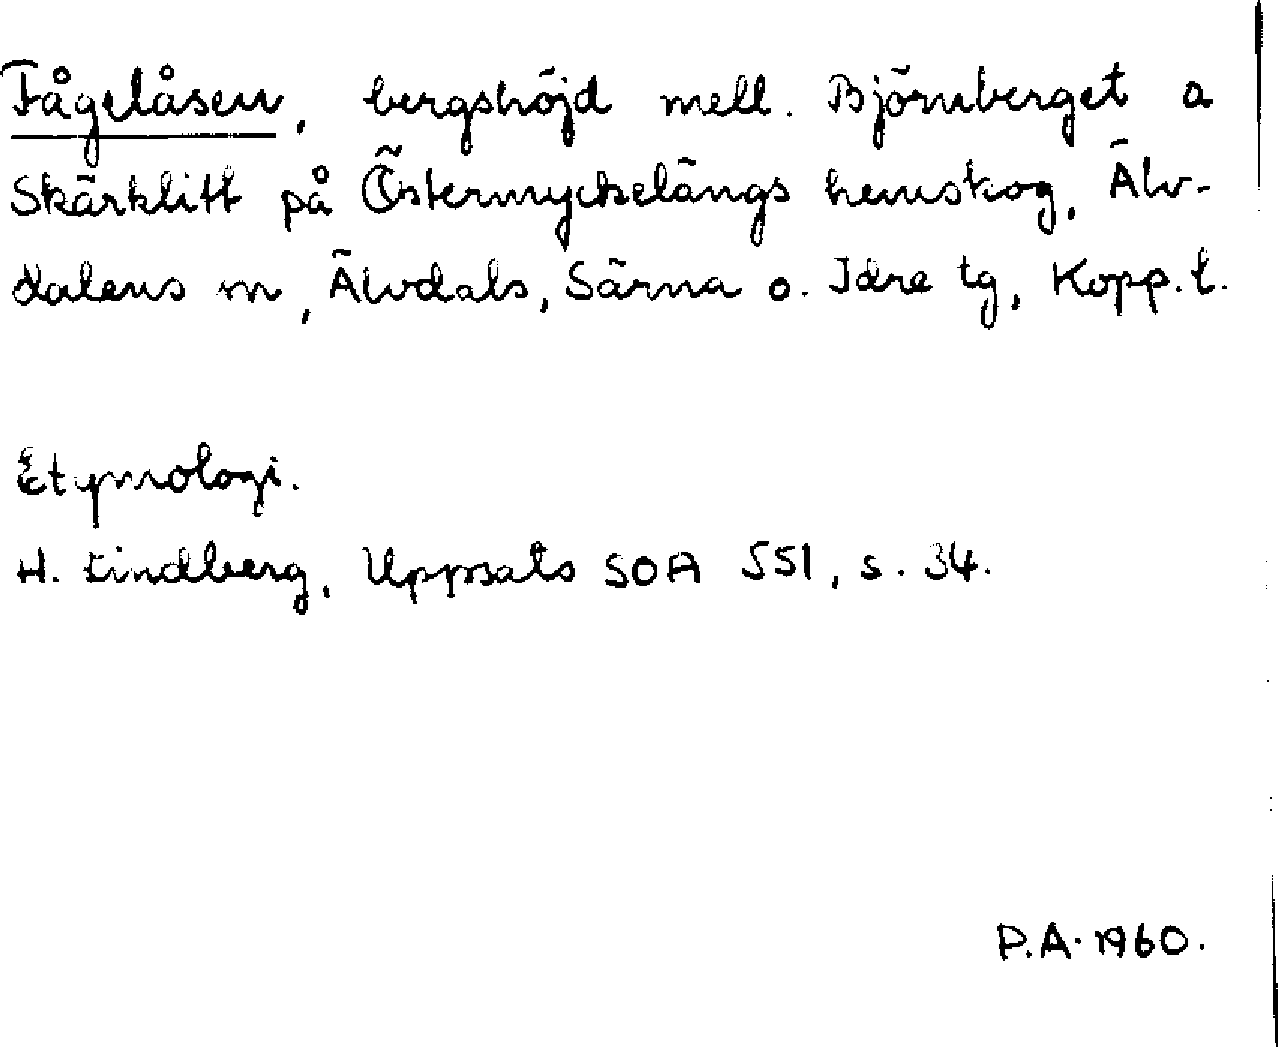 Fågelåsen, bergshöjd mell. Björnberget o
Skärklitt på Östermyckelängs hemskog, Älv-
dalens sn, Älvdals, Särna o. Idre tg, Kopp. l.
Etymologi.
H. Lindberg, Uppsats SOA 551, s. 34.
P.A. 1960.